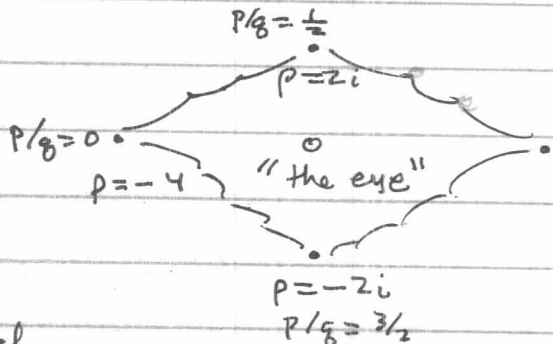 P/q = 1/2
ρ = 2i
P/q = 0
"the eye"
ρ = -4
ρ = -2i
P/q = 3/2